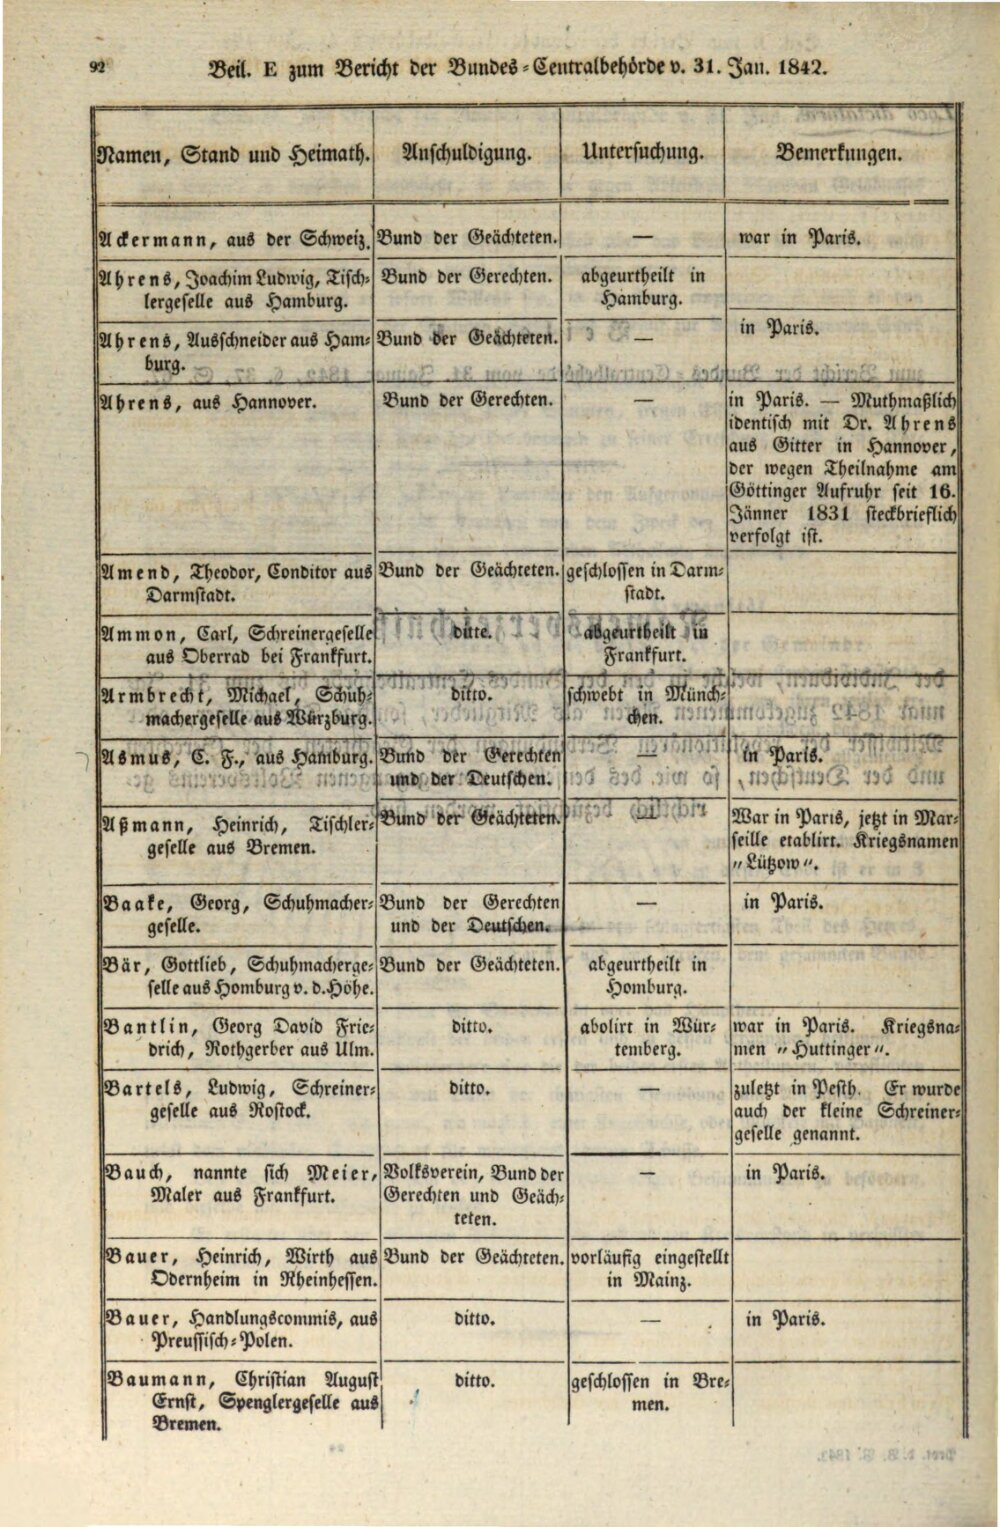 92
Beil. E zum Bericht der Bundes-Centralbehörde v. 31. Jan. 1842.
Namen, Stand und Heimath.
Anschuldigung.
Untersuchung.
Bemerkungen.
Ackermann, aus der Schweiz.
Bund der Geächteten.
—
war in Paris.
Ahrens, Joachim Ludwig, Tisch-
lergeselle aus Hamburg.
Bund der Gerechten.
abgeurtheilt in
Hamburg.
Ahrens, Ausschneider aus Ham-
burg.
Bund der Geächteten.
—
in Paris.
Ahrens, aus Hannover.
Bund der Gerechten.
—
in Paris. — Muthmaßlich
identisch mit Dr. Ahrens
aus Gitter in Hannover,
der wegen Theilnahme am
Göttinger Aufruhr seit 16.
Jänner 1831 steckbrieflich
verfolgt ist.
Amend, Theodor, Conditor aus
Darmstadt.
Bund der Geächteten.
geschlossen in Darm-
stadt.
Ammon, Carl, Schreinergeselle
aus Oberrad bei Frankfurt.
ditto.
abgeurtheilt in
Frankfurt.
Armbrecht, Michael, Schuh-
machergeselle aus Würzburg.
ditto.
schwebt in Münch-
chen.
Asmus, C. F., aus Hamburg.
Bund der Gerechten
und der Deutschen.
—
in Paris.
Aßmann, Heinrich, Tischler-
geselle aus Bremen.
Bund der Geächteten.
—
War in Paris, jetzt in Mar-
seille etablirt. Kriegsnamen
"Lützow".
Baake, Georg, Schuhmacher-
geselle.
Bund der Gerechten
und der Deutschen.
—
in Paris.
Bär, Gottlieb, Schuhmacherge-
selle aus Homburg v. d. Höhe.
Bund der Geächteten.
abgeurtheilt in
Homburg.
Bantlin, Georg David Frie-
drich, Rothgerber aus Ulm.
ditto.
abolirt in Wür-
temberg.
war in Paris. Kriegsna-
men "Huttinger".
Bartels, Ludwig, Schreiner-
geselle aus Rostock.
ditto.
—
zuletzt in Pesth. Er wurde
auch der kleine Schreiner-
geselle genannt.
Bauch, nannte sich Meier,
Maler aus Frankfurt.
Volksverein, Bund der
Gerechten und Geäch-
teten.
—
in Paris.
Bauer, Heinrich, Wirth aus
Odernheim in Rheinhessen.
Bund der Geächteten.
vorläufig eingestellt
in Mainz.
Bauer, Handlungscommis, aus
Preussisch-Polen.
ditto.
—
in Paris.
Baumann, Christian August
Ernst, Spenglergeselle aus
Bremen.
ditto.
geschlossen in Bre-
men.